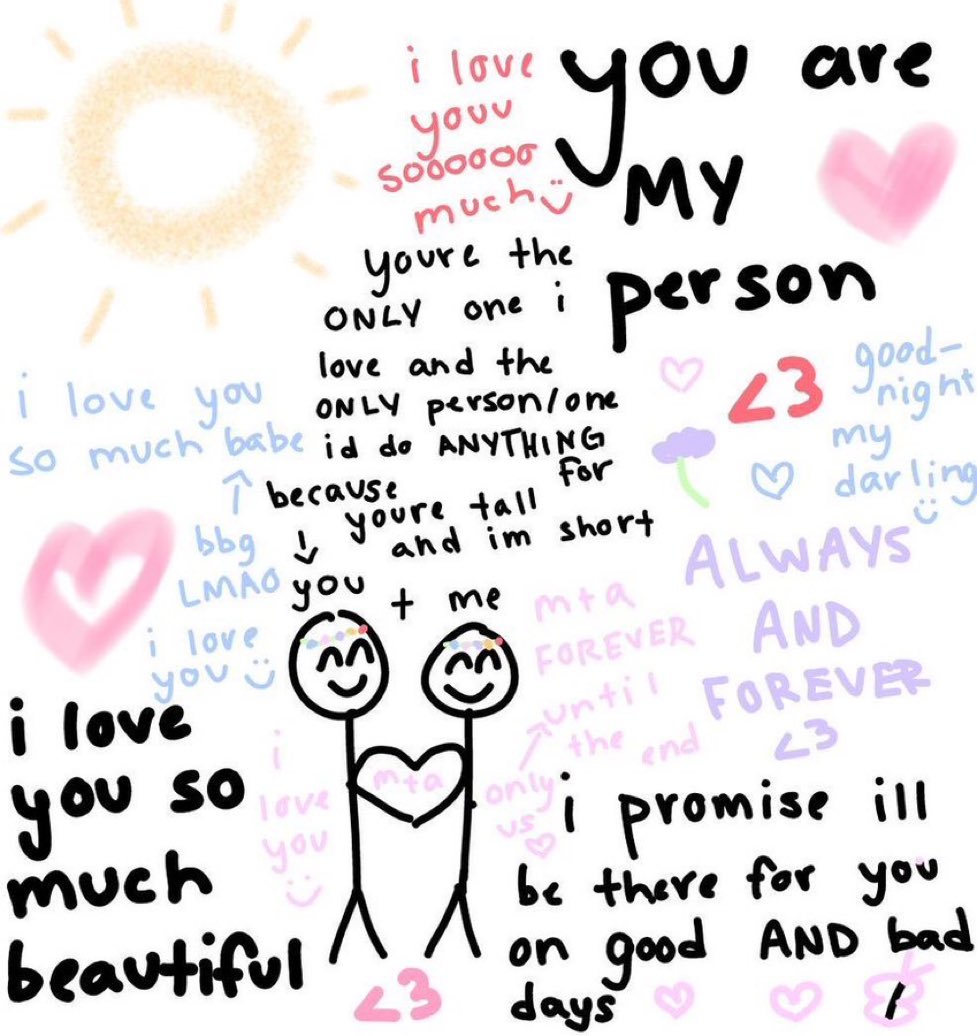 i love
youu
soooooo
much :)
you are
MY
person
youre the
ONLY one i
love and the
ONLY person/one
id do ANYTHING
for
because
youre tall
and im short
you + me
<3
good-
night
my
darling
:)
i love you
so much babe
bbg
LMAO
i love
you :)
ALWAYS
AND
FOREVER
<3
mta
FOREVER
until
the end
only
us
mta
i
love
you
:)
i love
you so
much
beautiful
i promise ill
be there for you
on good AND bad
days
<3